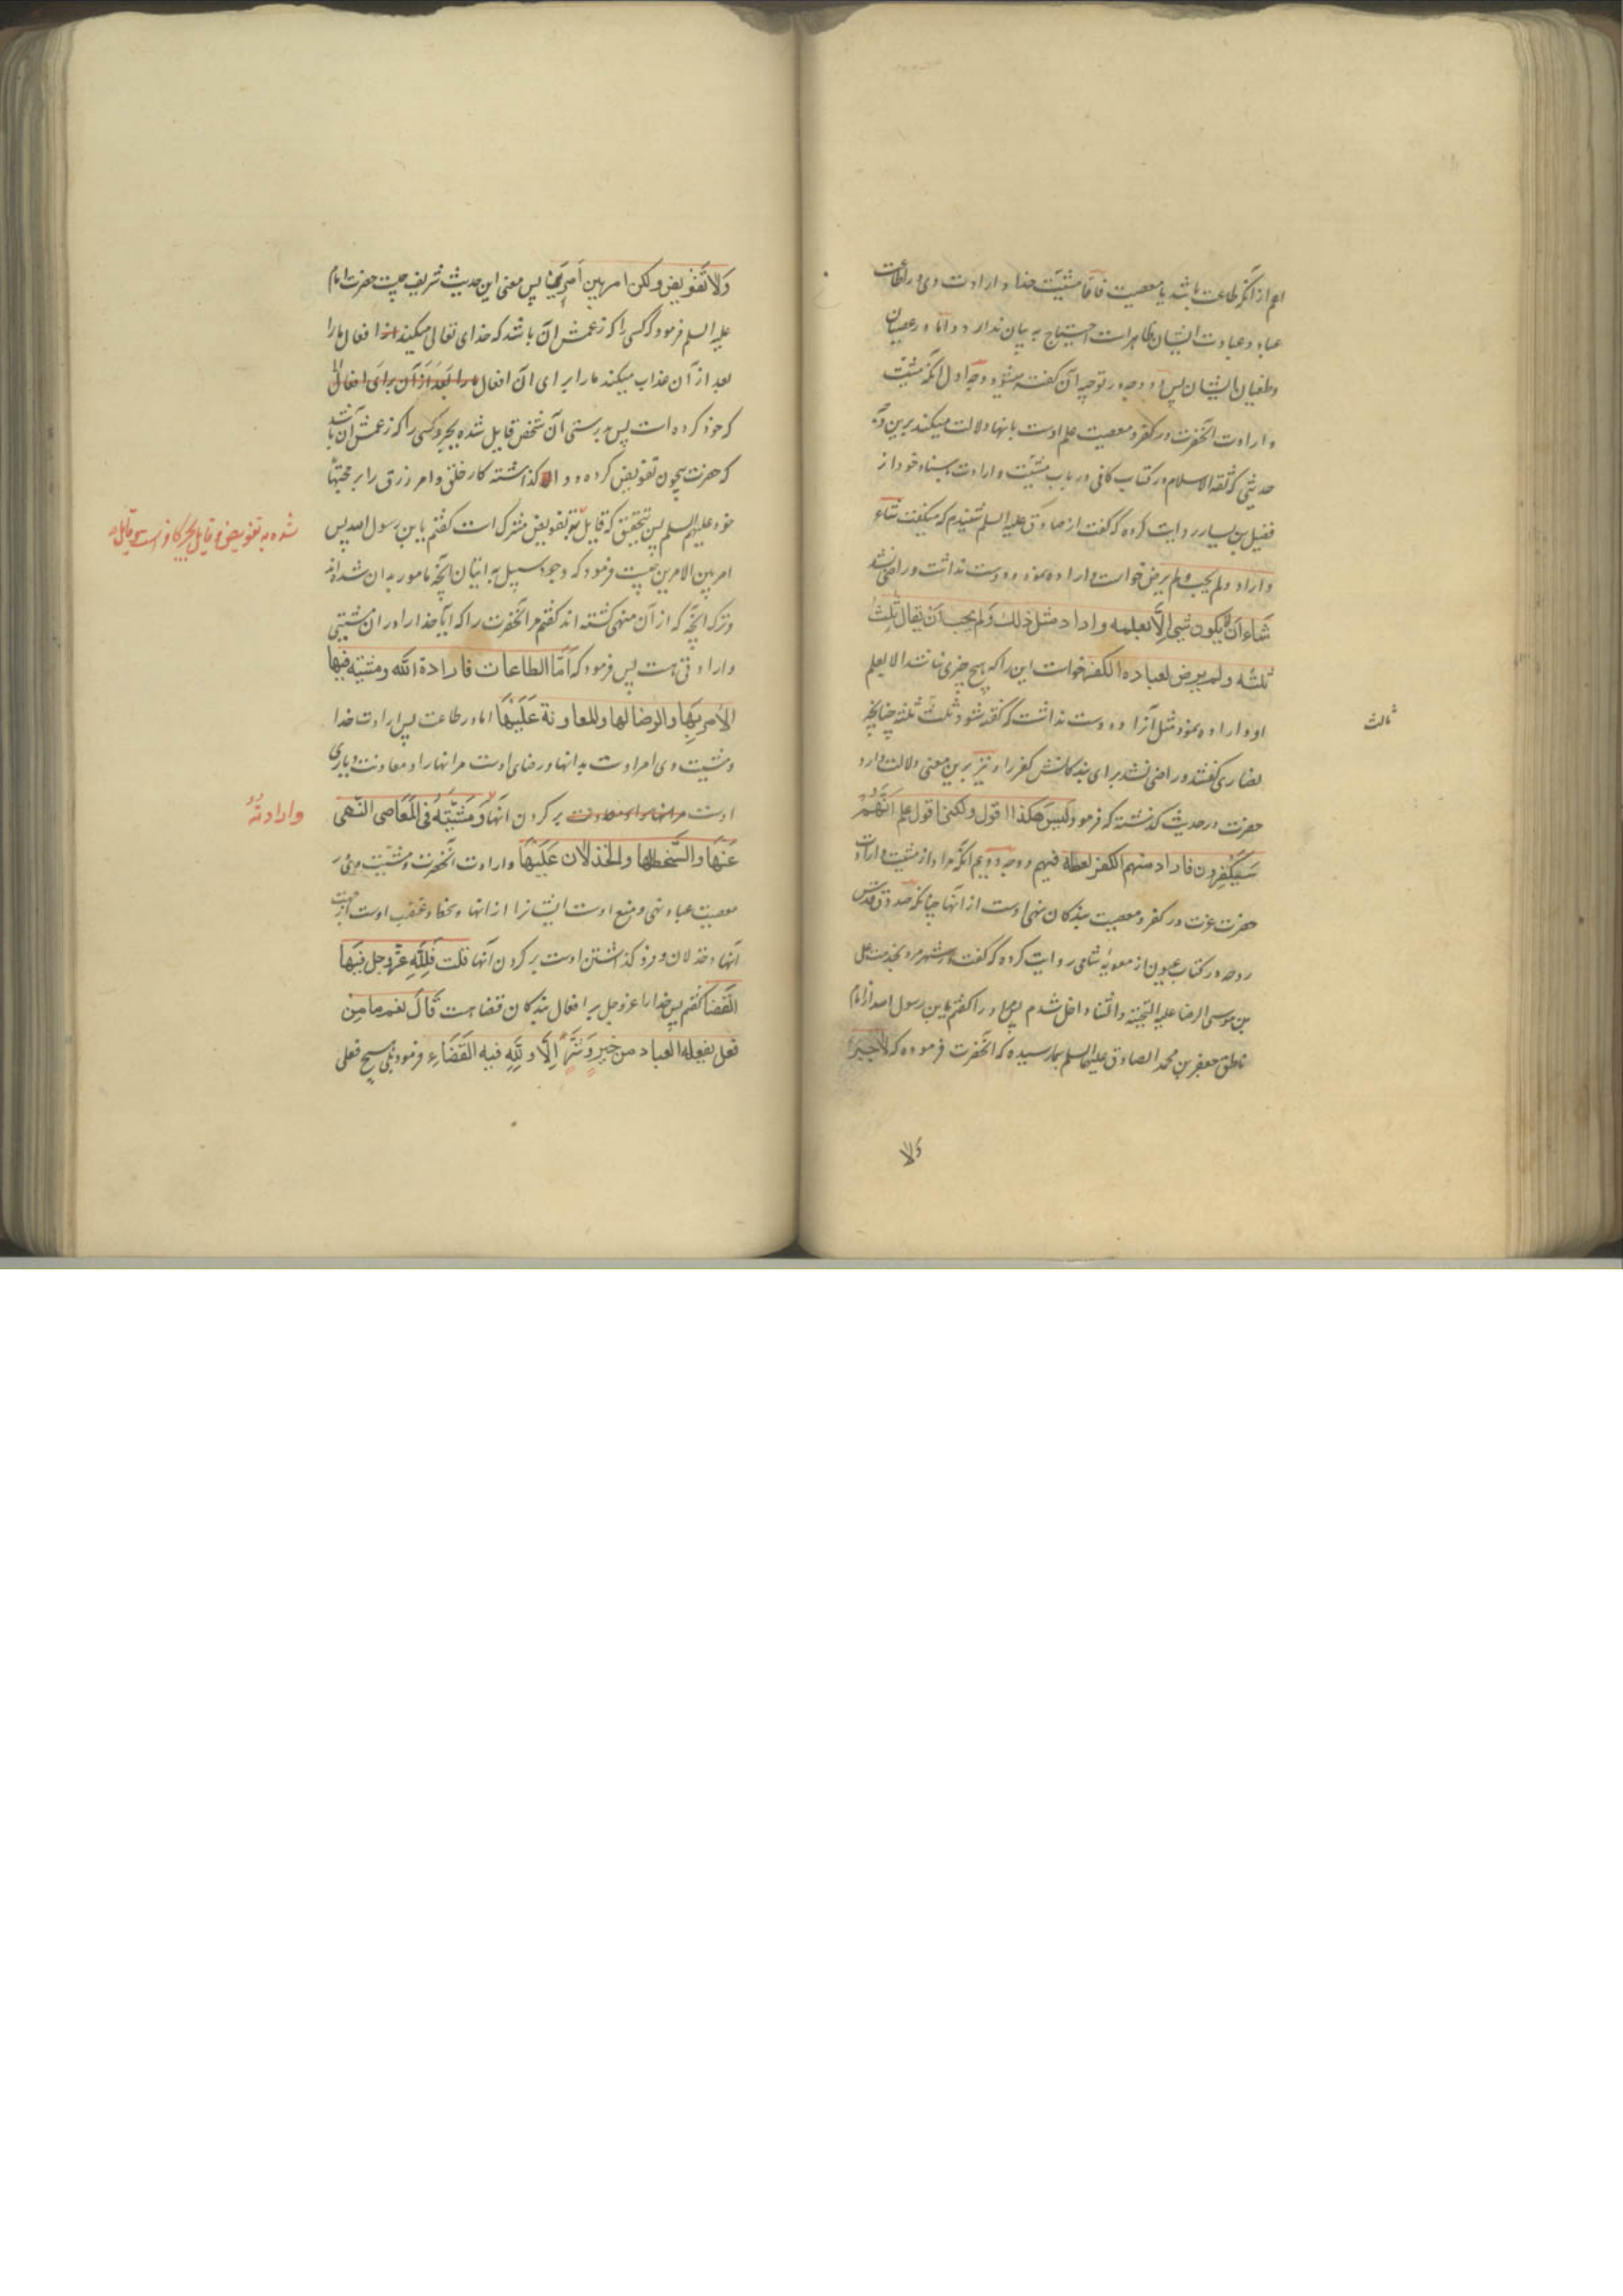 اعم از آنکه طاعت باشد یا معصیت فامّا مشیّت خدا و ارادت وی در طاعات
عباد و عبادت ایشان ظاهر است احتیاج به بیان ندارد و امّا در عصیان
و طغیان ایشان پس دو وجه در توجیه آن گفته میشود وجه اول آنکه مشیّت
و ارادت آنحضرت در کفر و معصیت علم اوست بانها و دلالت میکند برین وجه
حدیثی که ثقة الاسلام در کتاب کافی در باب مشیّت و ارادت بسناد خود از
فضیل بن یسار روایت کرده که گفت از صادق علیه السلم شنیدم که میگفت شاء
و اراد و لم یحب و لم یرض خواست و اراده نمود و دوست نداشت و راضی نشد
شَاءَ اَن لا یکون شیء اِلاّ بعلمه و اراد مثل ذلك وَ لم یحب اَن یقال ثلثُ
ثلثه و لم یرض لعباده الکفر خواست این را که هیچ چیزی نباشد الا بعلم
او و اراده نمود مثل آنرا و دوست نداشت که گفته شود ثلث ثلثه چنانچه
ثالث
نصاری گفتند و راضی نشد برای بندگانش کفر را و نیز برین معنی دلالت دارد
حضرت در حدیث گذشته که فرمود وَ لَیسَ هکذا اقول و لکنی اقول علم اَنّهُمْ
سَیَکْفِرُون فاراد منهم الکفر لعلمه فیهم و وجه دویم آنکه مراد از مشیت و ارادت
حضرت عزت در کفر و معصیت بندگان نهی اوست از آنها چنانکه صدوق قدس
روحه در کتاب عیون از معویه شامی روایت کرده که گفت در شهر مرو بخدمت علی
بن موسی الرضا علیه التحیة و الثناء داخل شدم پس او را گفتم یابن رسول الله از امام
ناطق جعفر بن محمد الصادق علیهما السلم بما رسیده که آنحضرت فرموده که لا جبرَ
وَلا
وَلا تَفْویض و لکن امر بین اَمرَین پس معنی این حدیث شریف چیست حضرت امام
علیه السلم فرمود که کسی را که زعمش آن باشد که خدای تعالی میکند افعال ما را
بعد از آن عذاب میکند ما را برای آن افعال ما را بَعْدَ اَز آن برای افعال
که خود کرده است پس بدرستی آن شخص قایل شده بجبر و کسی را که زعمش آن باشد
که حضرت بیچون تفویض کرده و وا گذاشته کار خلق و امر رزق را بر حجتها
خود علیهم السلم پس بتحقیق که قایل بتفویض مشرک است گفتم یابن رسول الله پس
شده به تفویض و قایل بجبر کافر است و قایل
امر بین الامرین چیست فرمود که وجود سبیل به اتیان آنچه مامور بدان شده‌اند
و ترک آنچه که از آن منهی گشته اند گفتم مر آنحضرت را که آیا خدا را در آن مشیتی
و ارادتی هست پس فرمود که اَمّا الطاعات فارادة الله و مشیته فیها
الاَمر بِهَا و الرضا لها و المعاونة عَلَیْهَا اما در طاعت پس ارادت خدا
و مشیت وی امر اوست بدانها و رضای اوست مر انها را و معاونت و یاری
اوست مر انها را و معاونت بر کردن آنها وَ مَشِیَّتِهِ فی المَعَاصی النّهی
و ارادتهُ
عَنهَا و السَّخط لها و الخذلان عَلَیْهَا و ارادت آنحضرت و مشیّت وی در
معصیت عباد نهی و منع اوست ایشانرا از انها و سخط و غضب اوست
آنها و خذلان و فرو گذاشتن اوست بر کردن آنها قلت فَلِلّهِ عزّ و جل فیهَا
القضا گفتم پس خدا را عز و جل بر افعال بندگان قضا هست قالَ نعم ما مِن
فعل یفعله العباد من خیرٍ وَ شَرٍّ اِلاّ و لِلّهِ فیه القَضَاء فرمود بلی هیچ فعلی